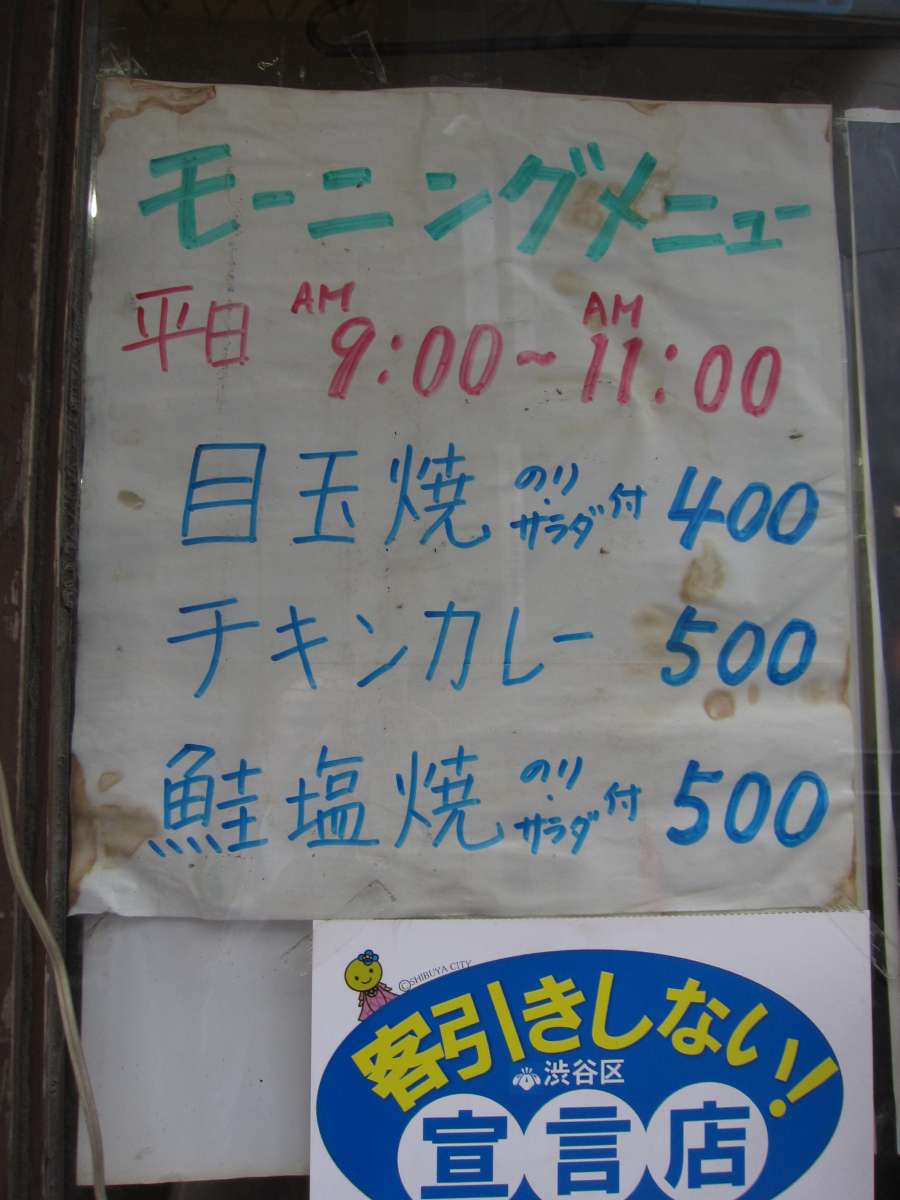 モーニングメニュー
平日 AM 9:00~AM 11:00
目玉焼 のり・サラダ付 400
チキンカレー 500
鮭塩焼 のり・サラダ付 500
©SHIBUYA CITY
客引きしない!!
渋谷区
宣言店